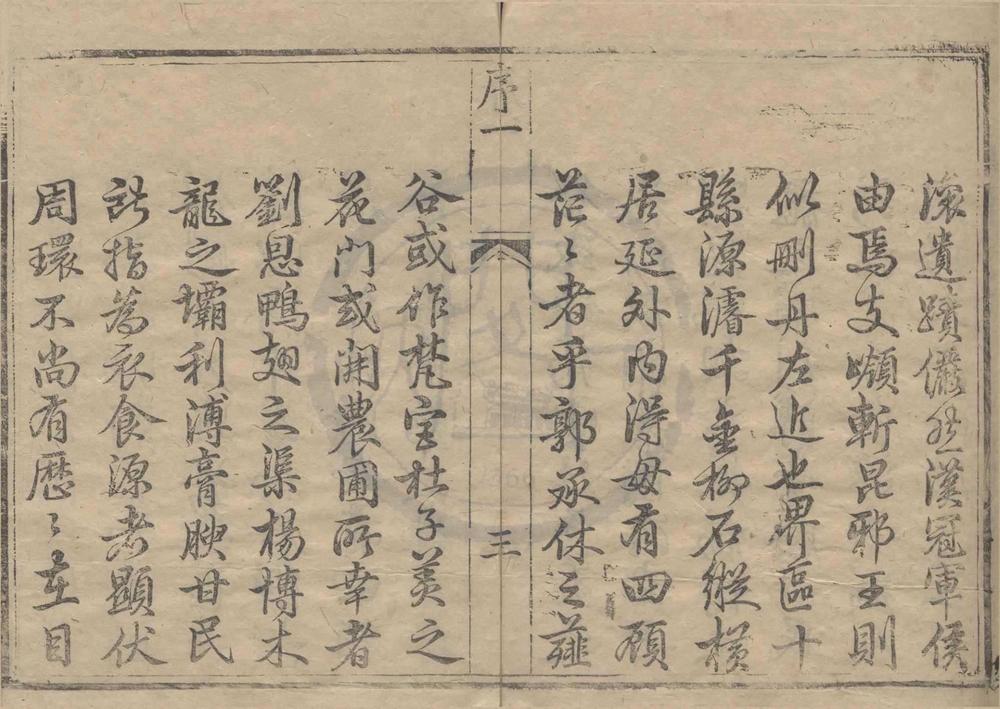 滾遺蹟儼然漢冠軍侯
由焉支巔斬昆邪王則
似刪丹左近也界區十
縣源濬千金柳石縱橫
居延外內得毋有四顧
茫〻者乎郭承休之薤
序一
三
谷或作梵宮杜子美之
花門或開農圃所幸者
劉恩鴨翅之渠楊博木
龍之壩利溥膏腴甘民
咸指為衣食源者顯伏
周環不尚有歷〻在目